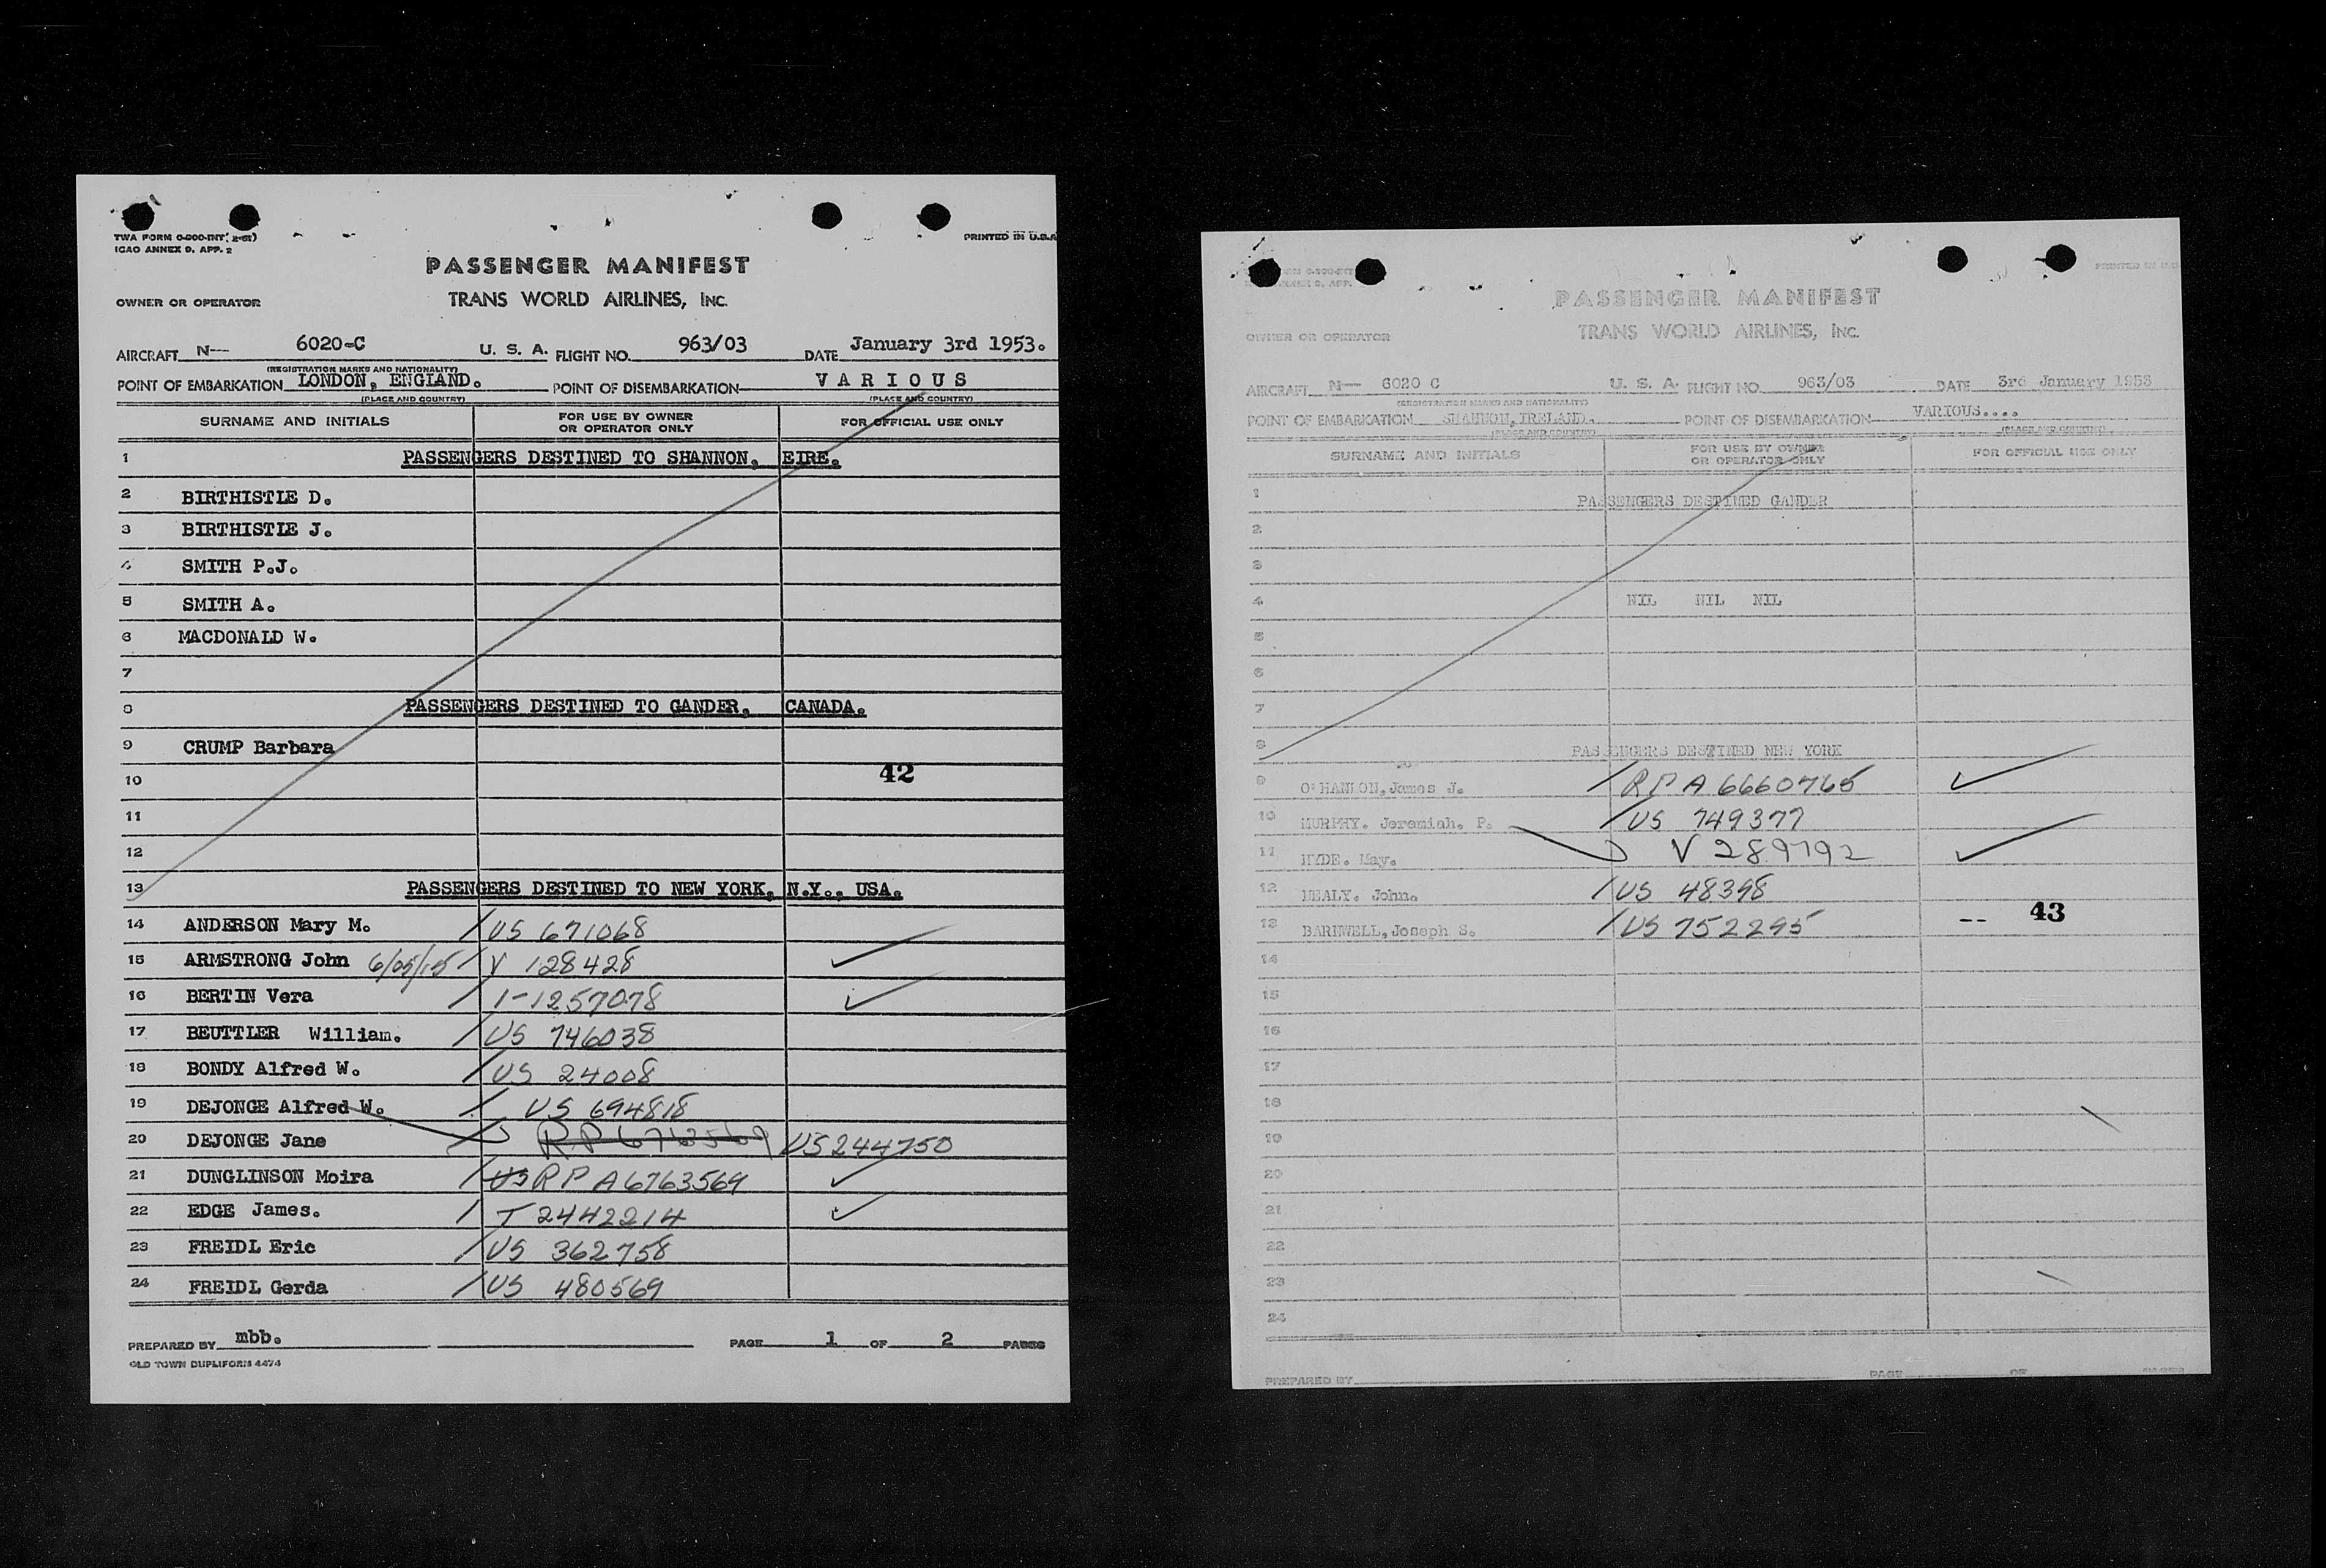 TWA FORM 0-900-INT( 2-51)
ICAO ANNEX 9, APP. 2
PRINTED IN U.S.A
PASSENGER MANIFEST
OWNER OR OPERATOR TRANS WORLD AIRLINES, INC.
AIRCRAFT N— 6020-C U. S. A. FLIGHT NO. 963/03 DATE January 3rd 1953.
(REGISTRATION MARKS AND NATIONALITY)
POINT OF EMBARKATION LONDON, ENGLAND. POINT OF DISEMBARKATION VARIOUS
(PLACE AND COUNTRY) (PLACE AND COUNTRY)
SURNAME AND INITIALS FOR USE BY OWNER OR OPERATOR ONLY FOR OFFICIAL USE ONLY
1 PASSENGERS DESTINED TO SHANNON, EIRE.
2 BIRTHISTLE D.
3 BIRTHISTLE J.
4 SMITH P.J.
5 SMITH A.
6 MACDONALD W.
7
8 PASSENGERS DESTINED TO GANDER, CANADA.
9 CRUMP Barbara
10 42
11
12
13 PASSENGERS DESTINED TO NEW YORK, N.Y., USA.
14 ANDERSON Mary M. / US 671068
15 ARMSTRONG John / V 128428 ✓
16 BERTIN Vera / 1-1257078 ✓
17 BEUTTLER William. / US 746038
18 BONDY Alfred W. / US 24008
19 DEJONGE Alfred W. / US 694818
20 DEJONGE Jane RP 6763569 US 244750
21 DUNGLINSON Moira / US RP A6763569 ✓
22 EDGE James. / T 2442214 ✓
23 FREIDL Eric / US 362758
24 FREIDL Gerda / US 480569
PREPARED BY mbb. PAGE 1 OF 2 PAGES
OLD TOWN DUPLIFORM 4474
PRINTED IN U.S
PASSENGER MANIFEST
TRANS WORLD AIRLINES, INC.
OWNER OR OPERATOR
AIRCRAFT N— 6020 C U. S. A. FLIGHT NO. 963/03 DATE 3rd January 1953
(REGISTRATION MARKS AND NATIONALITY)
POINT OF EMBARKATION SHANNON, IRELAND. POINT OF DISEMBARKATION VARIOUS....
(PLACE AND COUNTRY) (PLACE AND COUNTRY)
SURNAME AND INITIALS FOR USE BY OWNER OR OPERATOR ONLY FOR OFFICIAL USE ONLY
1 PASSENGERS DESTINED GANDER
2
3
4 NIL NIL NIL
5
6
7
8 PASSENGERS DESTINED NEW YORK
9 O'HANLON, James J. / RP A 6660765 ✓
10 MURPHY. Jeremiah. P. / US 749377
11 HYDE. May. V 289792 ✓
12 HEALY. John. / US 48398
13 BARNWELL, Joseph S. / US 752295 -- 43
14
15
16
17
18
19
20
21
22
23
24
PREPARED BY PAGE OF PAGES